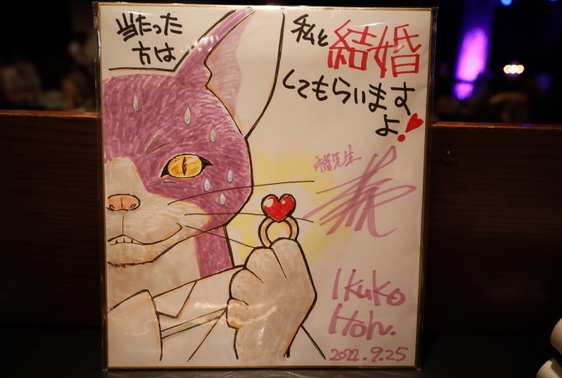 当たった
方は
私と結婚
してもらいます
よ
先生
Ikuko
Itoh.
2022.9.25